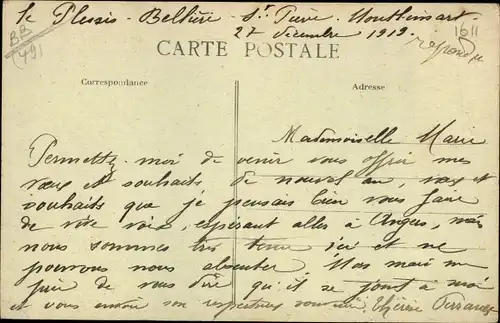 le Plessis - Bellière - St Pierre - Montlimart
27 décembre 1919.
CARTE POSTALE
Correspondance
Adresse
Mademoiselle Marie
Permettez-moi de venir vous offrir mes
vœux et souhaits, de nouvel an, vœux et
souhaits que je pensais bien vous faire
de vive voix, espérant aller à Angers, mais
nous sommes très tenu ici et ne
pouvons nous absenter. Mon mari me
prie de vous dire qu'il se joint à moi
et vous envoie son respectueux souvenir